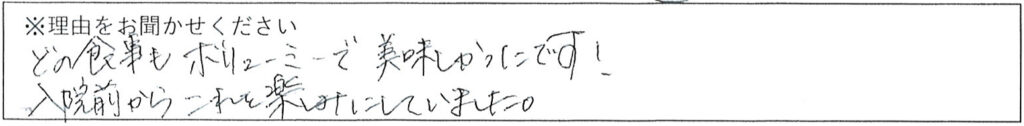 ※理由をお聞かせください
どの食事もボリューミーで美味しかったです！
入院前からこれを楽しみにしていました。